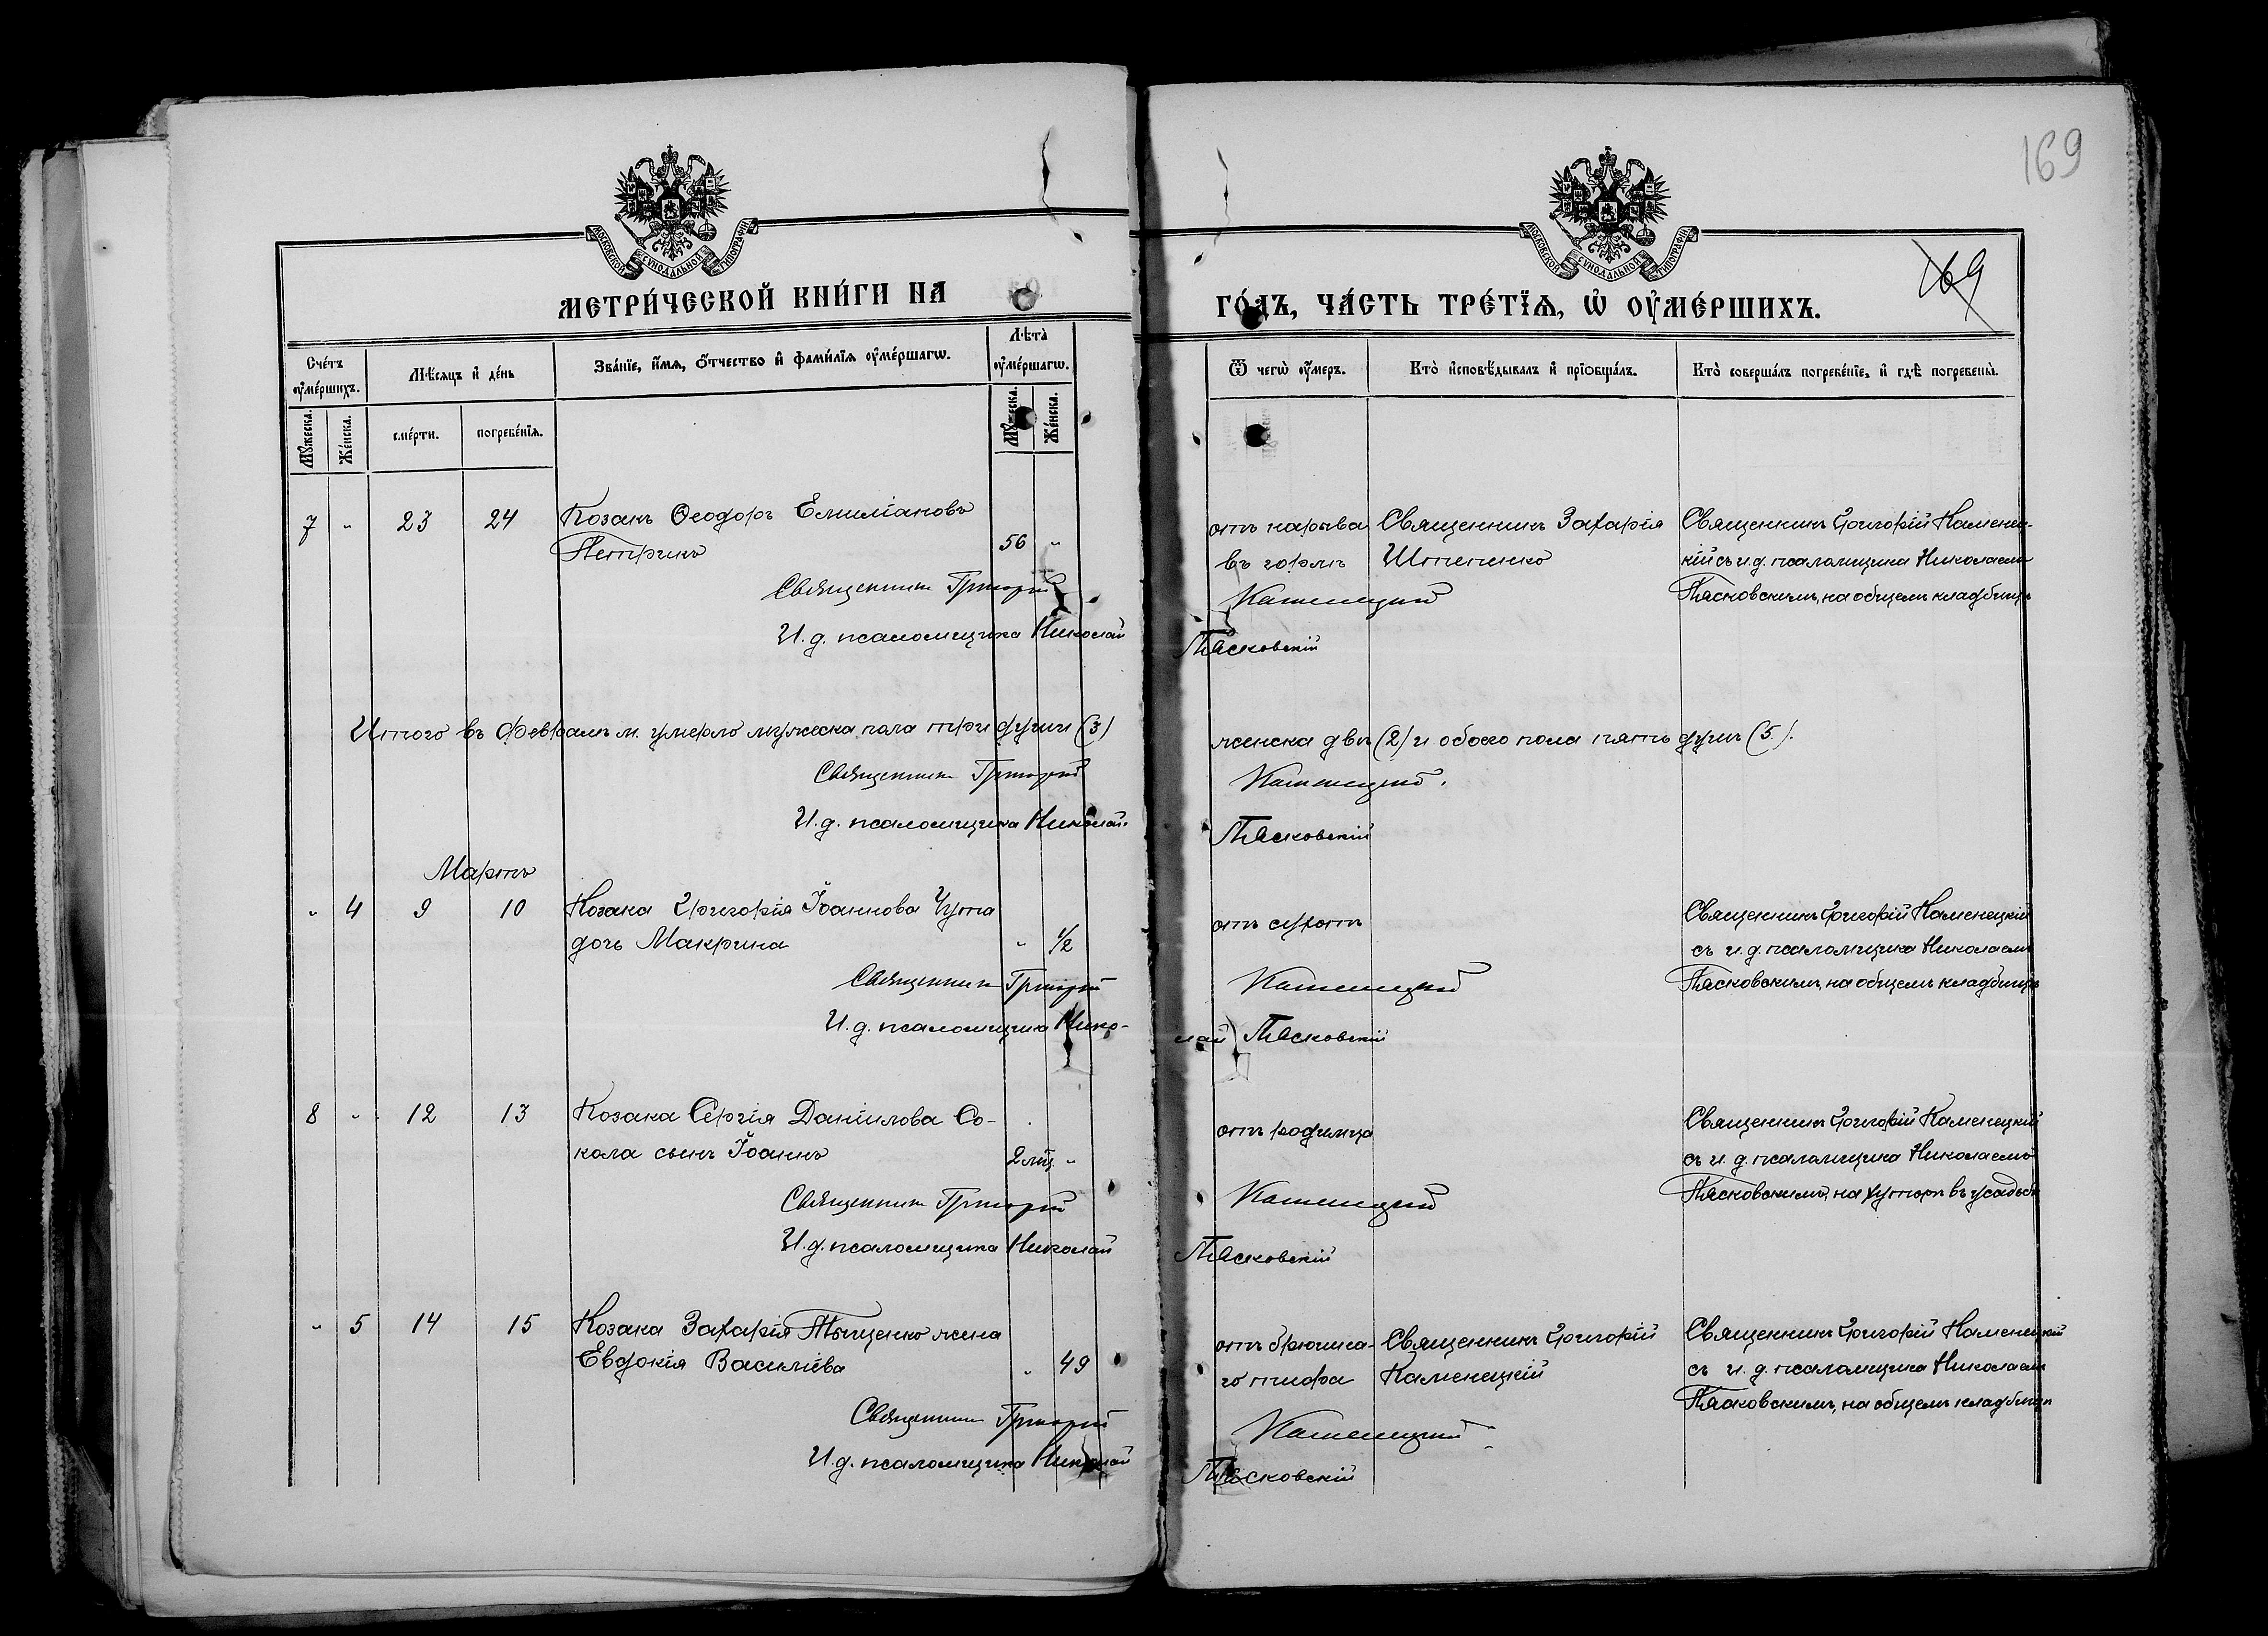 169
МОСКОВСКОЙ СѴНОДАЛЬНОЙ ТИПОГРАФІИ
МОСКОВСКОЙ СѴНОДАЛЬНОЙ ТИПОГРАФІИ
169
МЕТРИ́ЧЕСКОЙ КНИ́ГИ НА
ГО́ДЪ, ЧА́СТЬ ТРЕ́ТЇѦ, Ѡ҆ ОУ҆МЕ́РШИХЪ.
Сче́тъ оу҆ме́ршихъ.
Мѣ́сяцъ и҆ де́нь
Зва́нїе, и҆́мѧ, ѻ҆́тчество и҆ фами́лїѧ оу҆ме́ршагѡ.
Лѣ́та оу҆ме́ршагѡ.
Ѿ чегѡ̀ оу҆́меръ.
Кто̀ и҆сповѣ́дывалъ и҆ прїобща́лъ.
Кто̀ соверша́лъ погребе́нїе, и҆ гдѣ̀ погребены̀.
Мꙋ́жеска.
Же́нска.
сме́рти.
погребе́нїѧ.
Мꙋ́жеска.
Же́нска.
7 " 23 24 Козакъ Ѳеодоръ Емиліановъ
Петрикъ 56 "
отъ нарыва Священникъ Захарія Священникъ Григорій Каменец-
въ горлѣ Штепенко кій съ и.д. псаломщика Николаемъ
Пясковскимъ, на общемъ кладбищѣ
Священникъ Григорій Каменецкій
И. д. псаломщика Николай Пясковскій
Итого въ Февралѣ м. умерло мужеска пола три души (3) женска двѣ (2) и обоего пола пять душъ (5).
Священникъ Григорій Каменецкій.
И. д. псаломщика Николай Пясковскій
Мартъ
" 4 9 10 Козака Григорія Іоаннова Чута
дочь Макрина " 1/2
отъ сухотъ Священникъ Григорій Каменецкій
съ и. д. псаломщика Николаемъ
Пясковскимъ, на общемъ кладбищѣ
Священникъ Григорій Каменецкій
И. д. псаломщика Нико- лай Пясковскій
8 " 12 13 Козака Сергія Даніилова Со-
кола сынъ Іоаннъ 2 мѣц "
отъ родимца Священникъ Григорій Каменецкій
съ и. д. псаломщика Николаемъ
Пясковскимъ, на хуторѣ въ усадьбѣ
Священникъ Григорій Каменецкій
И. д. псаломщика Николай Пясковскій
" 5 14 15 Козака Захарія Тыщенко жена
Евдокія Василіева " 49
отъ брюшна- Священникъ Григорій Священникъ Григорій Каменецкій
го тифа Каменецкій съ и. д. псаломщика Николаемъ
Пясковскимъ, на общемъ кладбищѣ
Священникъ Григорій Каменецкій
И. д. псаломщика Николай Пясковскій